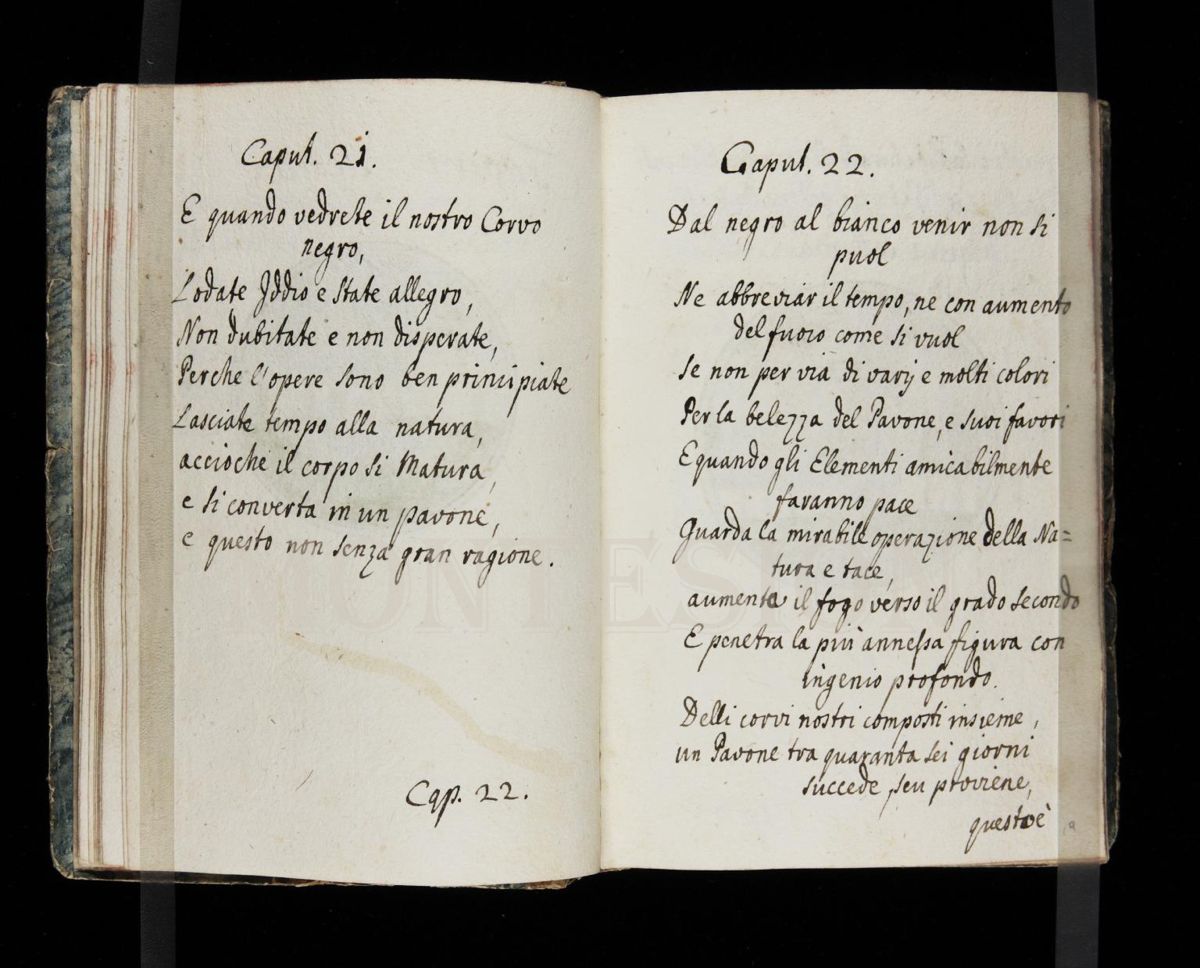 Caput. 21.
E quando vedrete il nostro Corvo
negro,
Lodate Iddio e state allegro,
Non dubitate e non disperate,
Perche l'opere sono ben principiate
Lasciate tempo alla natura,
accioche il corpo si Matura,
e si converta in un pavone,
e questo non senza gran ragione.
Cap. 22.
Caput. 22.
Dal negro al bianco venir non si
puol
Ne abbreviar il tempo, ne con aumento
del fuoco come si vuol
Se non per via di varij e molti colori
Per la belezza del Pavone, e suoi favori
E quando gli Elementi amicabilmente
faranno pace
Guarda la mirabile operazione della Na=
tura e tace,
aumenta il fogo verso il grado secondo
E penetra la più annessa figura con
ingenio profondo.
Delli corvi nostri composti insieme,
un Pavone tra quaranta sei giorni
succede, seu proviene,
questo è